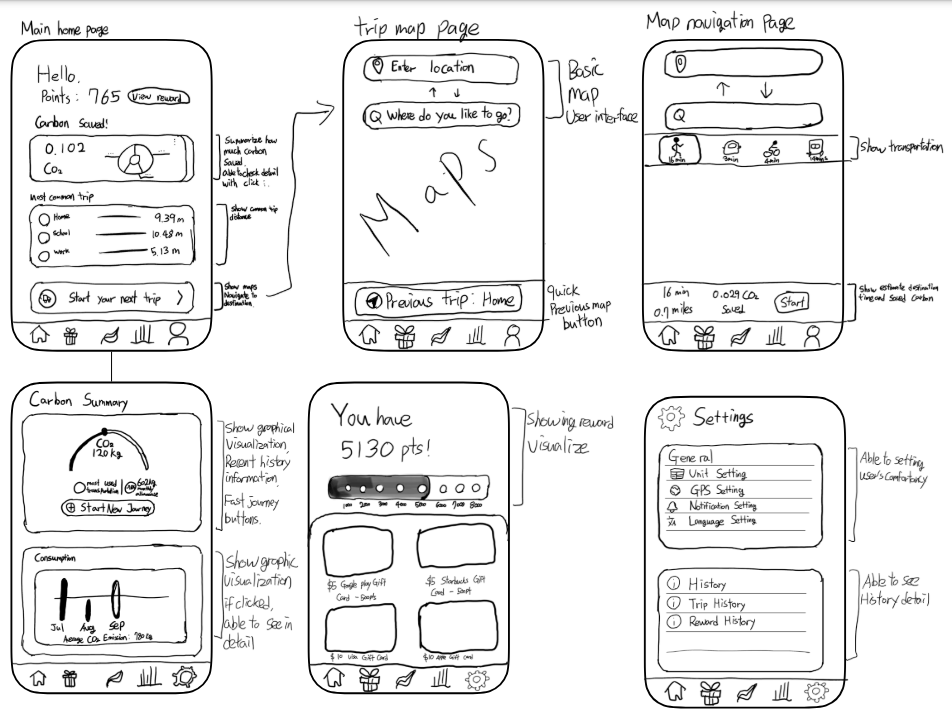 Main home page
Hello,
Points : 765 View reward
Carbon Saved!
0.102
CO₂
Summarize how
much carbon
Saved.
Able to check detail
with click
most common trip
Home 9.39 m
School 10.48 m
work 5.13 m
Show common trip
distance
Start your next trip >
Show maps
Navigate to
destination.
trip map page
Enter location
↑ ↓
Q Where do you like to go?
Basic
map
User interface
Maps
Previous trip : Home
quick
Previous map
button
Map navigation Page
↑ ↓
Q
16 min 3min 4min
Show transportation
16 min 0.029 CO₂ Start
0.7 miles Saved
Show estimate destination
time and Saved Carbon
Carbon Summary
CO₂
120 kg
most used
transportation
Start New Journey
Show graphical
Visualization,
Recent history
information
Fast journey
buttons.
Consumption
Jul Aug Sep
Average CO₂ Emission: 780 kg
Show graphic
visualization
if clicked,
able to see in
detail
You have
5130 pts!
1000 2000 3000 4000 5000 6000 7000 8000
$5 Google play Gift
Card - 500pts
$5 Starbucks Gift
Card - 500pt
$10 Visa Gift Card
$10 Gift card
Showing reward
Visualize
Settings
General
Unit Setting
GPS Setting
Notification Setting
Language Setting
Able to setting
User's
History
Trip History
Reward History
Able to see
History detail